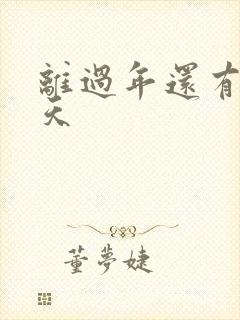 離過年還有
天
董夢婕